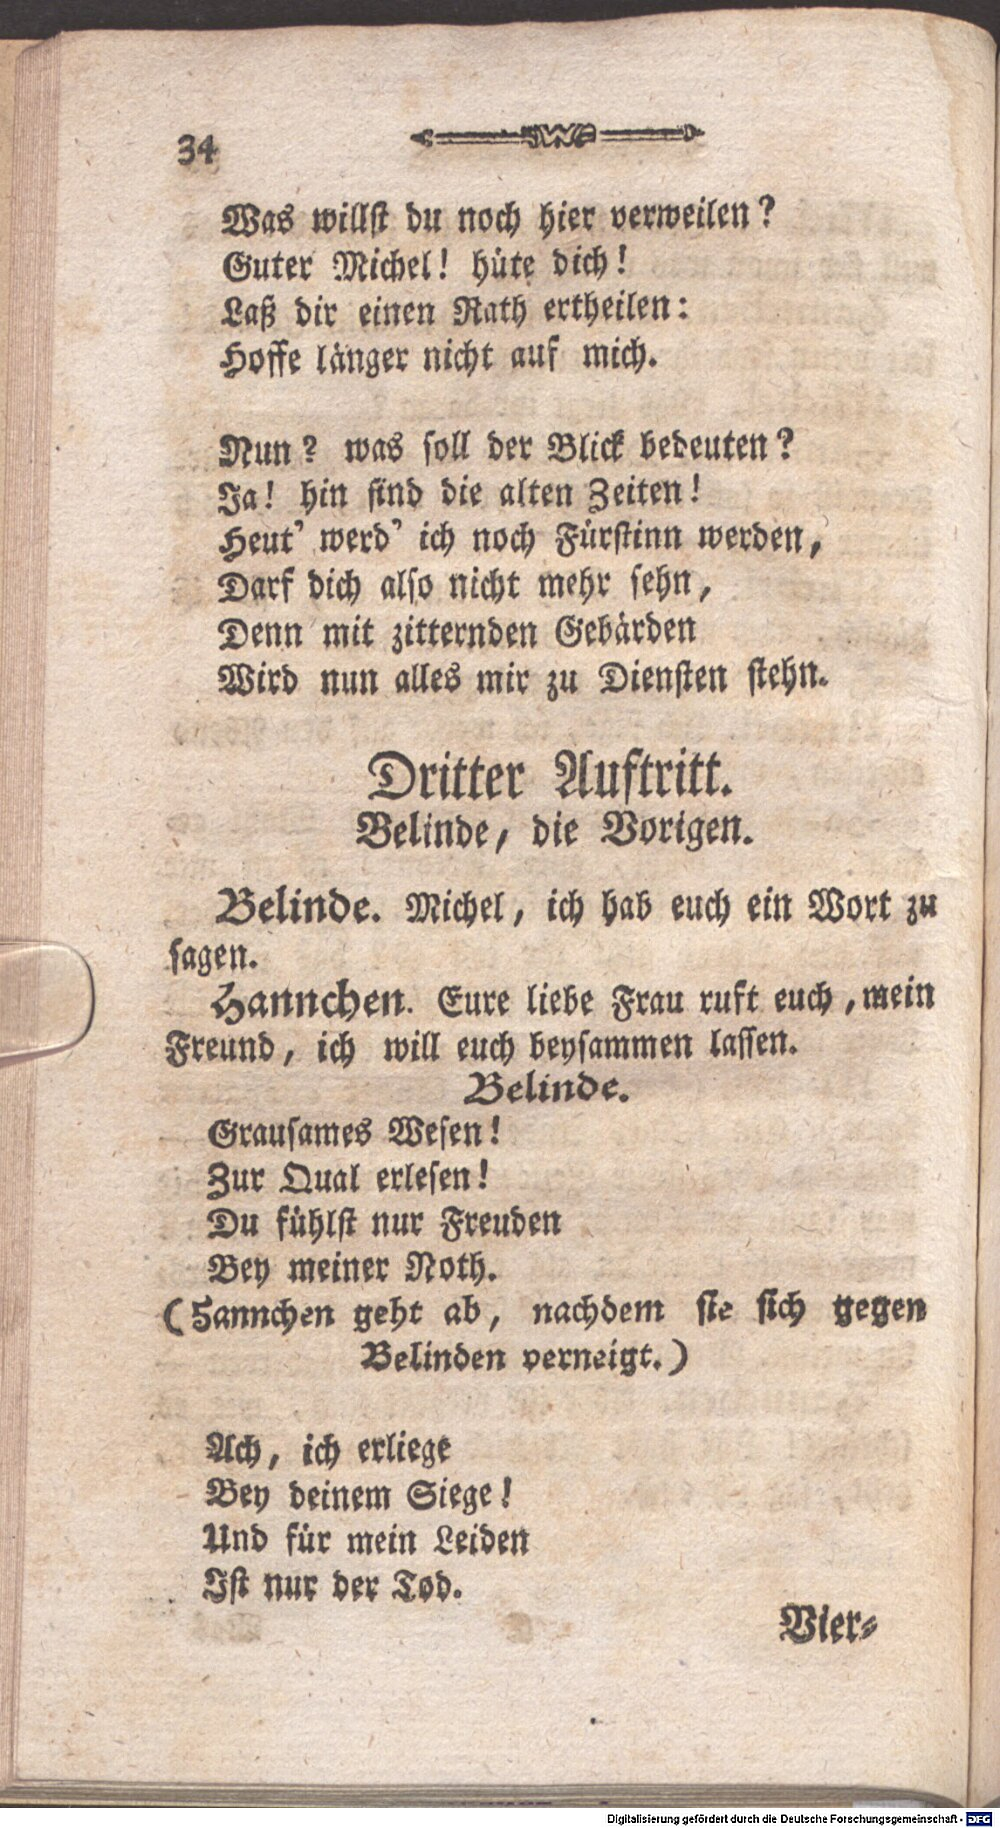 34
Was willst du noch hier verweilen?
Guter Michel! hüte dich!
Laß dir einen Rath ertheilen:
Hoffe länger nicht auf mich.
Nun? was soll der Blick bedeuten?
Ja! hin sind die alten Zeiten!
Heut' werd' ich noch Fürstinn werden,
Darf dich also nicht mehr sehn,
Denn mit zitternden Gebärden
Wird nun alles mir zu Diensten stehn.
Dritter Auftritt.
Belinde, die Vorigen.
Belinde. Michel, ich hab euch ein Wort zu
sagen.
Hannchen. Eure liebe Frau ruft euch, mein
Freund, ich will euch beysammen lassen.
Belinde.
Grausames Wesen!
Zur Qual erlesen!
Du fühlst nur Freuden
Bey meiner Noth.
(Hannchen geht ab, nachdem sie sich gegen
Belinden verneigt.)
Ach, ich erliege
Bey deinem Siege!
Und für mein Leiden
Ist nur der Tod.
Vier-
Digitalisierung gefördert durch die Deutsche Forschungsgemeinschaft - DFG